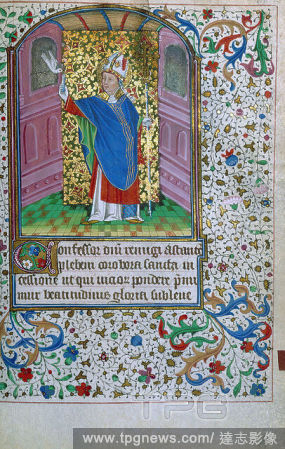 Confessor dni remigi astante
plebem corobora sancta in
cessione ut qui
pondere
mur beatitudinis gloria subleue
TPG
www.tpgnews.com/達志影像